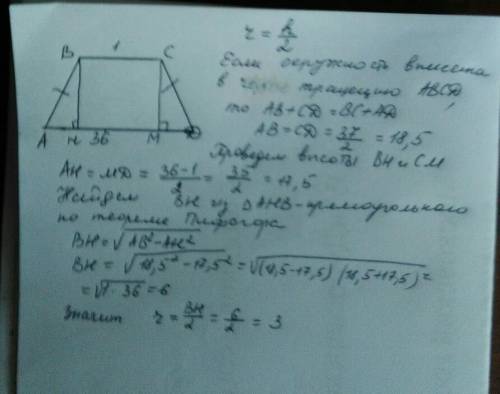 r = h/2
Если окружность вписана
в трапецию ABCD,
то AB+CD=BC+AD
AB=CD=37/2=18,5
Проведем высоты BH и CM
B 1 C
A H 36 M D
AH=MD=(36-1)/2=37/2=17,5
Найдем BH из ΔAHB-прямоугольного
по теореме Пифагора
BH=√(AB²-AH²)
BH=√(18,5²-17,5²)=√((18,5-17,5)(18,5+17,5))=
=√(1·36)=6
Значит r=BH/2=6/2=3